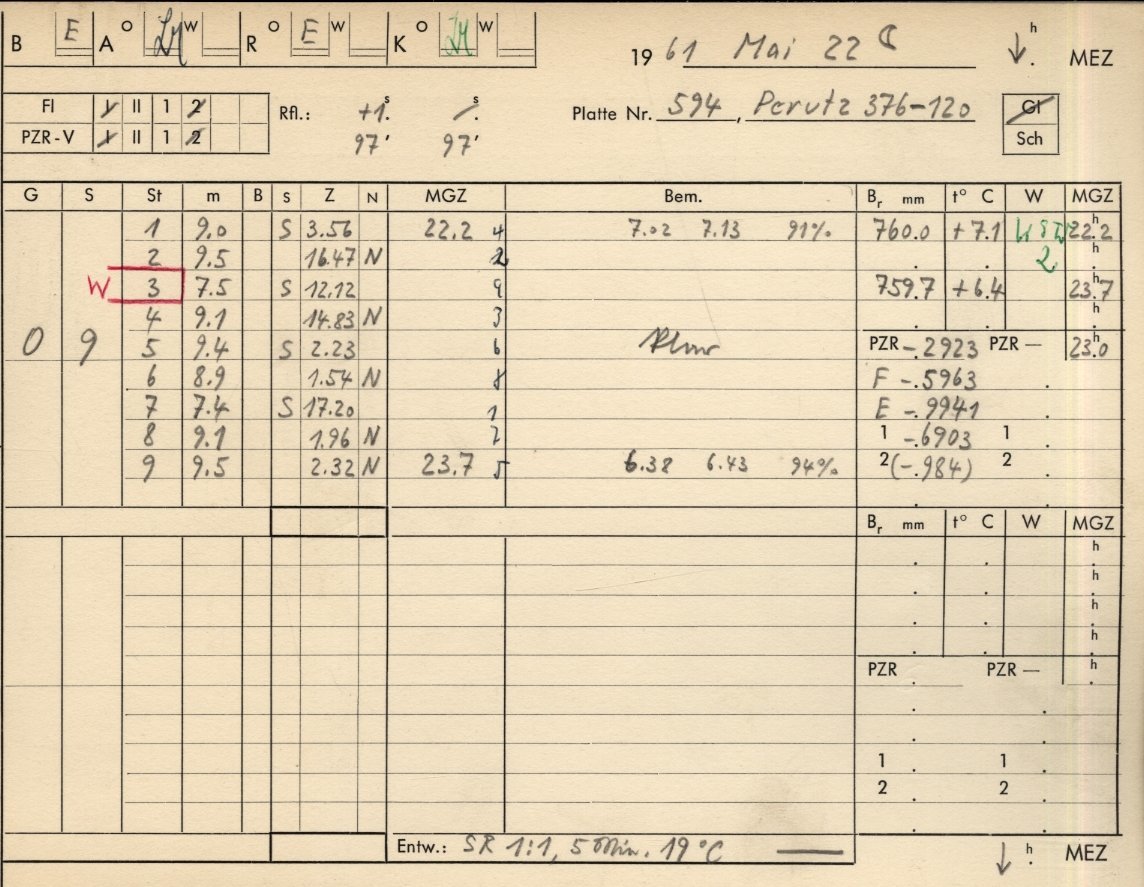 B E A O W R O E W K O W
19 61 Mai 22 h . MEZ
Fl I II 1 2 Rfl.: +1s. s. Platte Nr. 594, Perutz 376-120 Gl
PZR-V I II 1 2 97' 97' Sch
G S St m B S Z N MGZ Bem. Br mm t° C W MGZ
1 9.0 S 3.56 22.2 4 7.02 7.13 91% 760.0 +7.1 WSW 22.2 h
2 9.5 16.47 N 2 2 h
W 3 7.5 S 12.12 9 759.7 +6.4 23.7 h
4 9.1 14.83 N 3 h
0 9 5 9.4 S 2.23 6 PZR -.2923 PZR — 23.0 h
6 8.9 1.54 N 8 F -.5963
7 7.4 S 17.20 1 E -.9941
8 9.1 1.96 N 7 1 -.6903 1
9 9.5 2.32 N 23.7 5 6.38 6.43 94% 2 (-.984) 2
Br mm t° C W MGZ
h
h
h
h
PZR PZR — h
1 1
2 2
Entw.: SR 1:1, 5 Min. 19°C h . MEZ